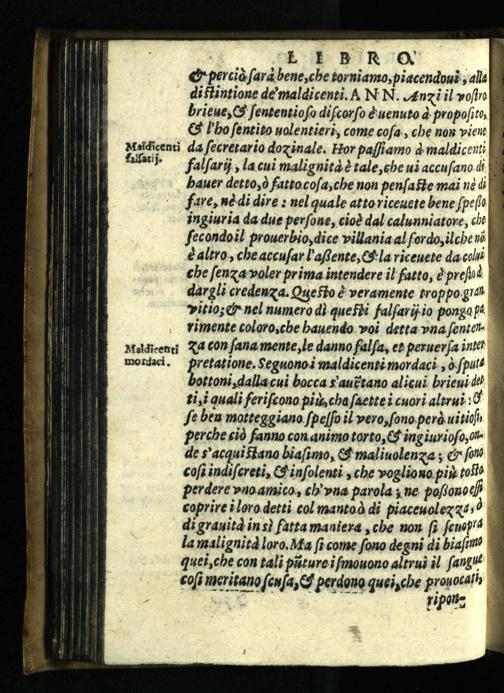 LIBRO.
& perciò sarà bene, che torniamo, piacendoui, alla
distintione de' maldicenti. ANN. Anzi il vostro
brieue, & sententioso discorso è uenuto à proposito,
& l'ho sentito uolentieri, come cosa, che non viene
Maldicenti
falsarij.
da secretario dozinale. Hor passiamo à maldicenti
falsarij, la cui malignità è tale, che ui accusano di
hauer detto, ò fatto cosa, che non pensaste mai nè di
fare, nè di dire: nel quale atto riceuete bene spesso
ingiuria da due persone, cioè dal calunniatore, che
secondo il prouerbio, dice villania al sordo, ilche nō
è altro, che accusar l'assente, & la riceuete da colui
che senza voler prima intendere il fatto, è presto à
dargli credenza. Questo è veramente troppo gran
vitio; & nel numero di questi falsarij io pongo pa
rimente coloro, che hauendo voi detta vna senten-
Maldicenti
mordaci.
za con sana mente, le danno falsa, et peruersa inter
pretatione. Seguono i maldicenti mordaci, ò sputa
bottoni, dalla cui bocca s'auētano alicui brieui det-
ti, i quali feriscono più, che saette i cuori altrui: &
se ben motteggiano spesso il vero, sono però uitiosi,
perche ciò fanno con animo torto, & ingiurioso, on-
de s'acquistano biasimo, & maliuolenza; & sono
cosi indiscreti, & insolenti, che vogliono più tosto
perdere vno amico, ch'vna parola; ne possono essi
coprire i loro detti col manto ò di piaceuolezza, ò
di grauità in sì fatta maniera, che non si scuopra
la malignità loro. Ma si come sono degni di biasimo
quei, che con tali pūture ismouono altrui il sangue
cosi meritano scusa, & perdono quei, che prouocati,
ripon-